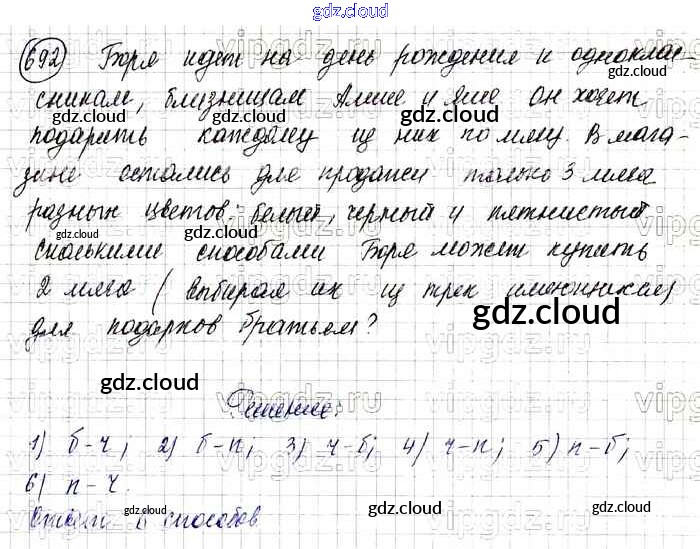 gdz.cloud
692) Боря идет на день рождения к однокла-
ссникам, близнецам Алеше и Яше Он хочет
подарить каждому из них по мячу. В мага-
зине остались для продажи только 3 мяча
разных цветов: белый, черный и пятнистый
сколькими способами Боря может купить
2 мяча (выбирая их из трех имеющихся)
для подарков братьям?
Решение:
1) б-ч; 2) б-п; 3) ч-б; 4) ч-п; 5) п-б;
6) п-ч.
Ответ: 6 способов
gdz.cloud